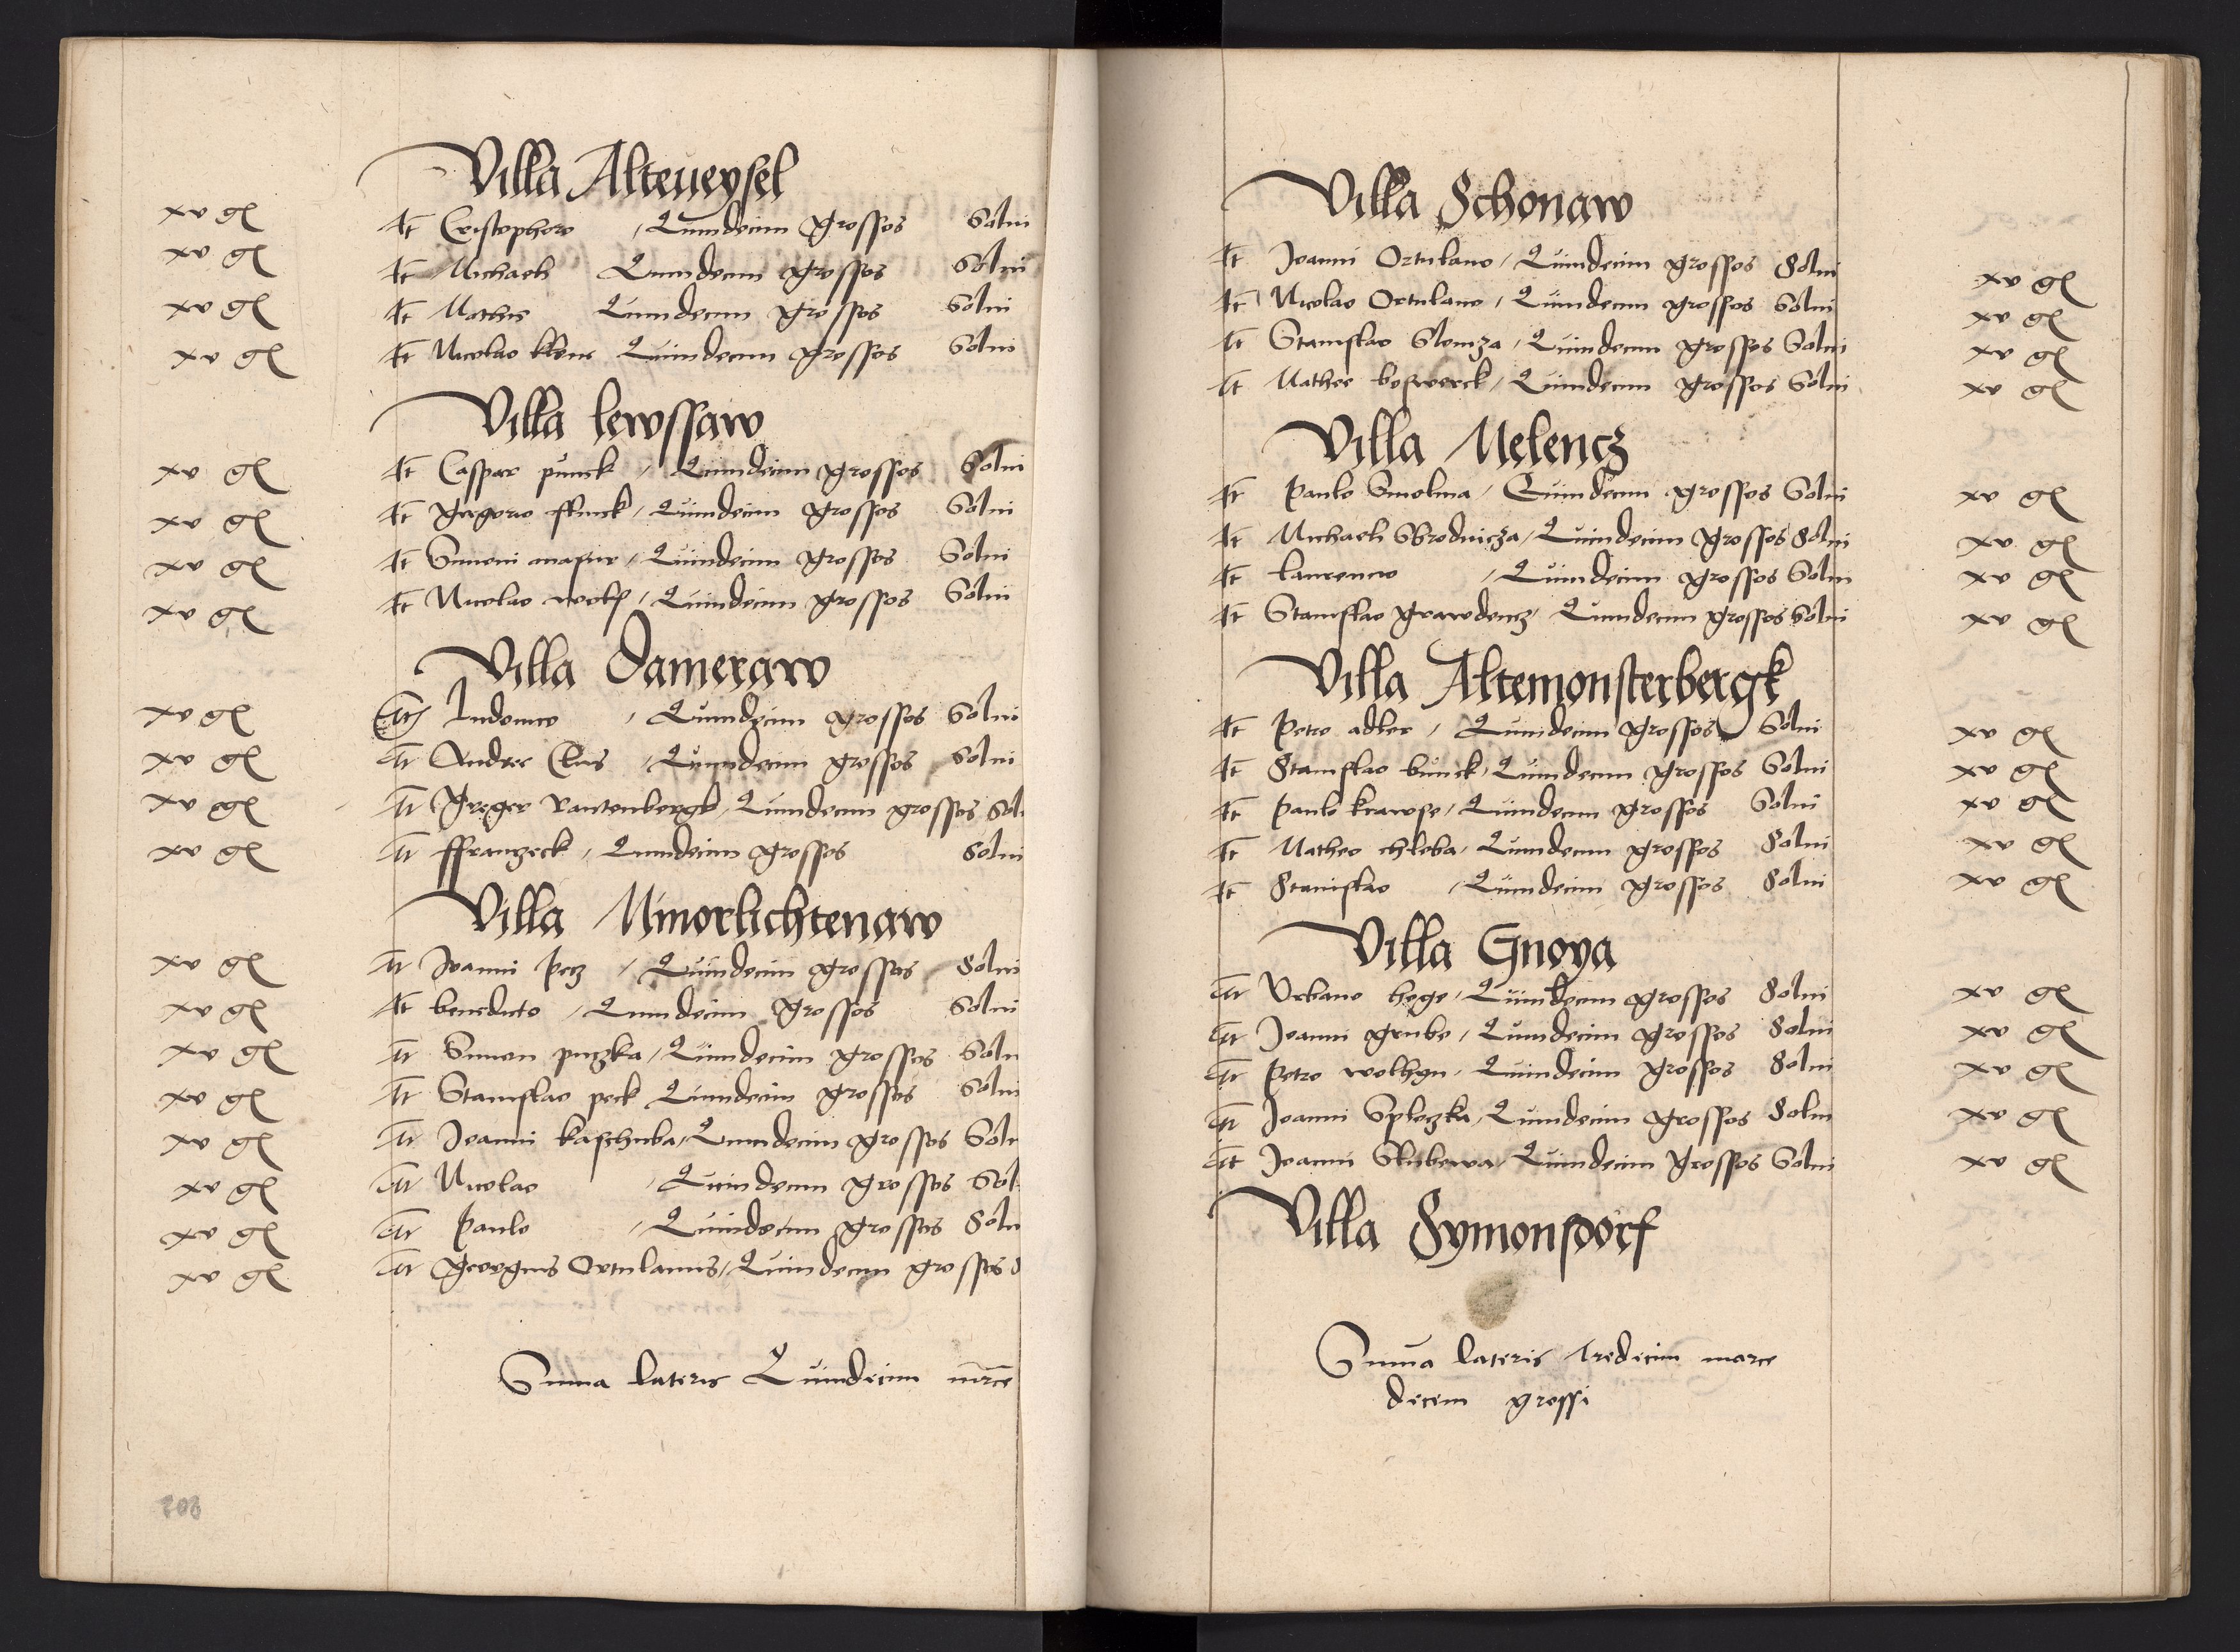 Villa Alteueysel
xv gℓ It Cristophoro / Quindecim grossos Solui
xv gℓ It Michaeli Quindecim grossos Solui
xv gℓ It Mathis Quindecim grossos Solui
xv gℓ It Nicolao klene Quindecim grossos Solui
Villa lewssaw
xv gℓ It Caspar punck / Quindecim grossos Solui
xv gℓ It gregorio ffunck / Quindecim grossos Solui
xv gℓ It Simoni masur / Quindecim grossos Solui
xv gℓ It Nicolao / Quindecim grossos Solui
Villa Dameraw
xv gℓ It Ludouico / Quindecim grossos Solui
xv gℓ It Andree Clus / Quindecim grossos Solui
xv gℓ It Greger Rautenbergk / Quindecim grossos Sol
xv gℓ It ffranzeck / Quindecim grossos Solui
Villa Minorlichtenaw
xv gℓ It Joanni petz / Quindecim grossos Solui
xv gℓ It benedicto / Quindecim grossos Solui
xv gℓ It Simon puczka / Quindecim grossos Solu
xv gℓ It Stanislao peck Quindecim grossos Solui
xv gℓ It Joanni kaschuba / Quindecim grossos Solu
xv gℓ It Nicolao / Quindecim grossos Sol
xv gℓ It Paulo / Quindecim grossos Solu
xv gℓ It georgius Ortulanus / Quindecim grossos S
Suma lateris Quindecim mrce
208
Villa Schonaw
It Joanni Ortulano / Quindecim grossos Solui xv gℓ
It Nicolao Ortulano / Quindecim grossos Solui xv gℓ
It Stanislao Slomza / Quindecim grossos Solui xv gℓ
It Matheo boswerck / Quindecim grossos Solui xv gℓ
Villa Melencz
It Paulo Smolina / Quindecim grossos Solui xv gℓ
It Michaeli Brodnicza / Quindecim grossos Solui xv gℓ
It laurencio / Quindecim grossos Solui xv gℓ
It Stanislao grawdencz / Quindecim grossos Solui xv gℓ
Villa Altemonsterbergk
It Petro adler / Quindecim grossos Solui xv gℓ
It Stanislao bunck / Quindecim grossos Solui xv gℓ
It Paulo krawse / Quindecim grossos Solui xv gℓ
It Matheo chleba / Quindecim grossos Solui xv gℓ
It Stanislao / Quindecim grossos Solui xv gℓ
Villa Gnoya
It Vrbano hoge / Quindecim grossos Solui xv gℓ
It Joanni grube / Quindecim grossos Solui xv gℓ
It Petro wolhgn / Quindecim grossos Solui xv gℓ
It Joanni Sploczka / Quindecim grossos Solui xv gℓ
It Joanni Slubewa / Quindecim grossos Solui xv gℓ
Villa Symonsdorf
Suma lateris tredecim marce
decem grossi